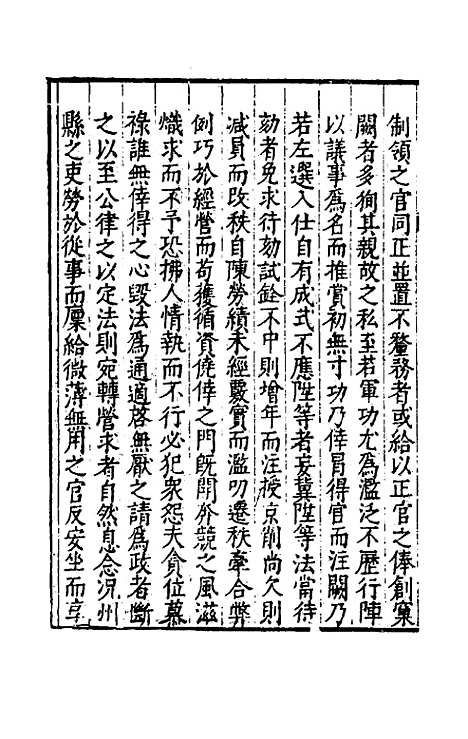 制領之官同正並置不釐務者或給以正官之俸創窠
闕者多徇其親故之私至若軍功尤為濫泛不歷行陣
以議事為名而推賞初無寸功乃倖冒得官而注闕乃
若左選入仕自有成式不應陞等者妄冀陞等法當待
劾者免求待劾試銓不中則增年而注授京削尚欠則
減員而改秩自陳勞績未經覈實而濫叨遷秩牽合弊
例巧於經營而苟獲循資僥倖之門既開奔競之風滋
熾求而不予恐拂人情執而不行必犯衆怨夫貪位慕
祿誰無倖得之心毀法為通適啓無厭之請為政者斷
之以至公律之以定法則宛轉營求者自然息念況州
縣之吏勞於從事而廩給微薄無用之官反安坐而享